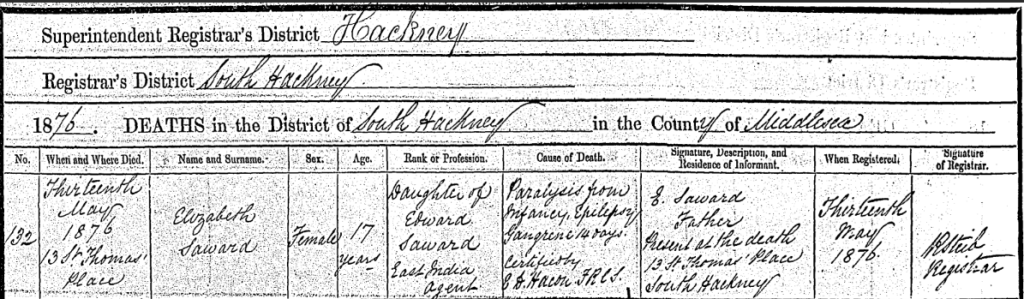 Superintendent Registrar's District Hackney
Registrar's District South Hackney
1876. DEATHS in the District of South Hackney in the County of Middlesex
No.
When and Where Died.
Name and Surname.
Sex.
Age.
Rank or Profession.
Cause of Death.
Signature, Description, and
Residence of Informant.
When Registered.
Signature
of Registrar.
132
Thirteenth
May
1876
13 St Thomas'
Place
Elizabeth
Saward
Female
17
years
Daughter of
Edward
Saward
East India
Agent
Paralysis from
Infancy, Epilepsy
Gangrene 14 days
Certified by
E. D. Hacon F.R.C.S.
E. Saward
Father
Present at the death
13 St Thomas' Place
South Hackney
Thirteenth
May
1876.
Registrar